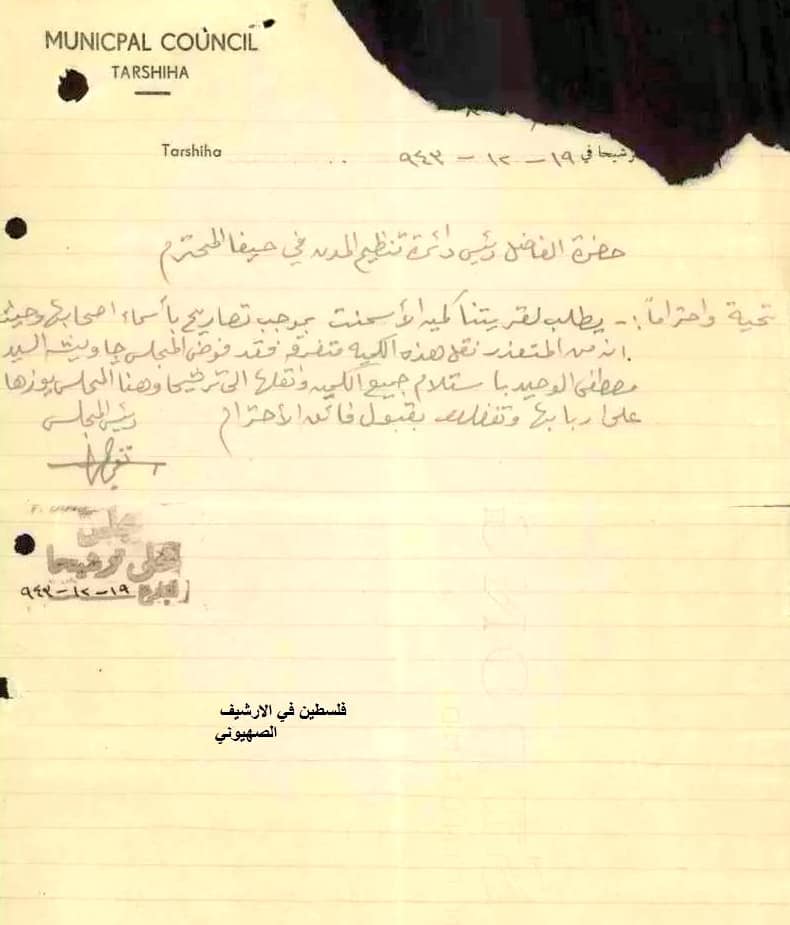 MUNICPAL COUNCIL
TARSHIHA
Tarshiha
ترشيحا في ١٩ - ١٢ - ٩٤٣
حضرة الفاضل رئيس دائرة تنظيم المدن في حيفا المحترم
تحية واحتراماً :- يطلب لقريتنا كمية الأسمنت بموجب تصاريح بأسماء اصحابها وحيث
انه من المتعذر نقل هذه الكمية متفرقة فقد فوض المجلس جاويشه السيد
مصطفى الوحيد باستلام جميع الكمية ونقلها الى ترشيحا وهنا المجلس يوزعها
على اربابها وتفضلوا بقبول فائق الأحترام
رئيس المجلس
مجلس
محلي ترشيحا
التاريخ ١٩-١٢-٩٤٣
فلسطين في الارشيف
الصهيوني